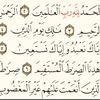 الْحَمْدُ لِلَّهِ رَبِّ الْعَالَمِينَ الرَّحْمَٰنِ
الرَّحِيمِ مَالِكِ يَوْمِ الدِّينِ إِيَّاكَ
نَعْبُدُ وَإِيَّاكَ نَسْتَعِينُ
اهْدِنَا الصِّرَاطَ الْمُسْتَقِيمَ صِرَاطَ
الَّذِينَ أَنْعَمْتَ عَلَيْهِمْ غَيْرِ الْمَغْضُوبِ